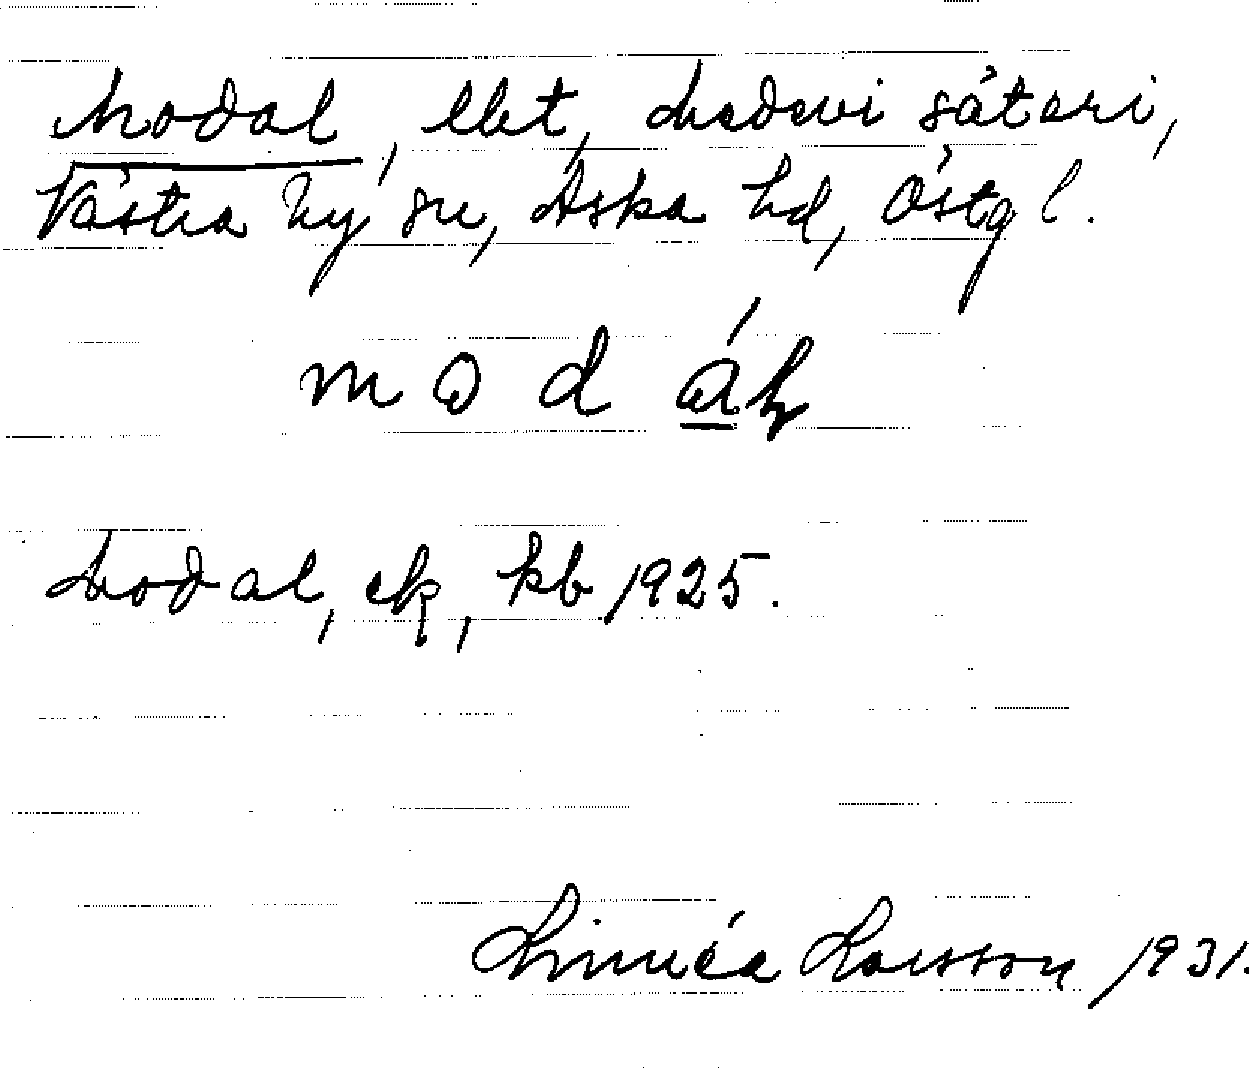 Modal, lht, Medevi säteri,
Västra Ny sn, Aska hd, Östg l.
m o d á l
Modal, ek, kb 1925.
Linnéa Larsson 1931.